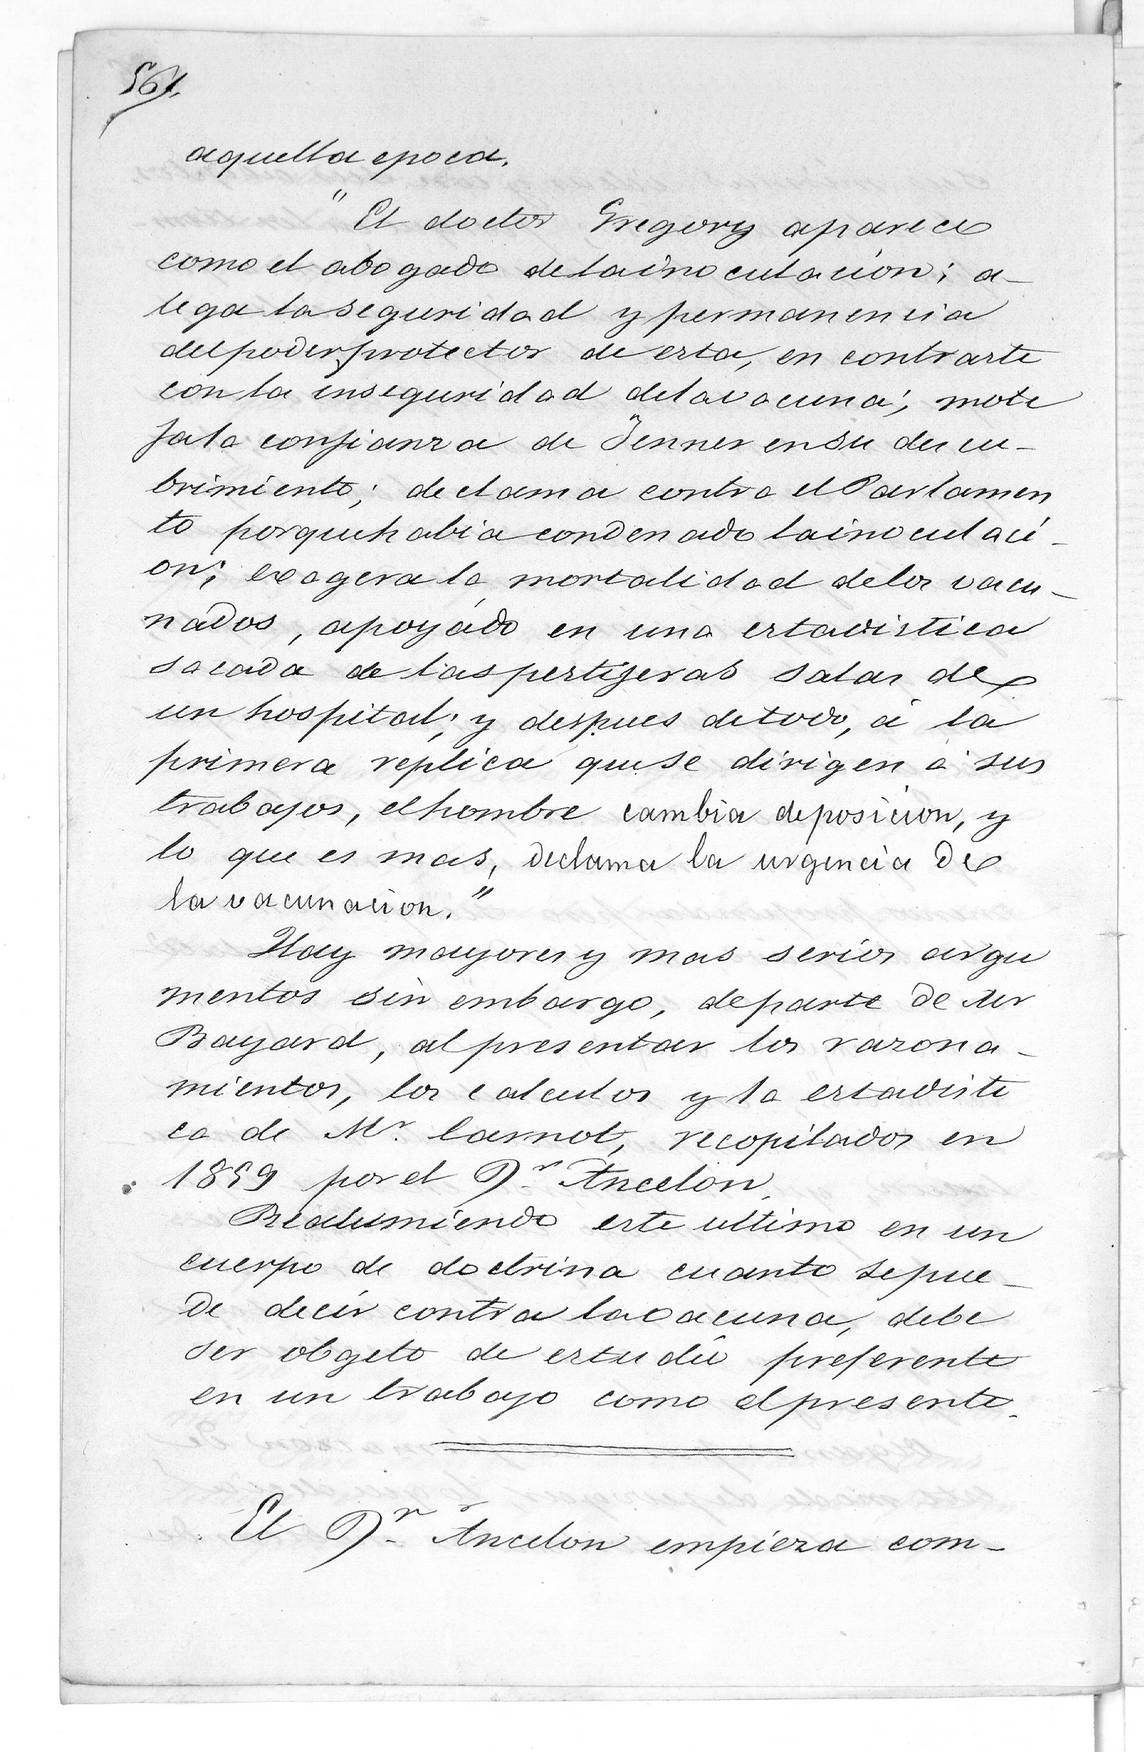 561.
aquella epoca.
" El doctor Gregory aparece
como el abogado de la inoculacion; a-
lega la seguridad y permanencia
del poder protector de esta, en contraste
con la inseguridad de la vacuna; mote
ja la confianza de Jenner en su descu-
brimiento; declama contra el Parlamen
to porque habia condenado la inoculaci-
on; exagera la mortalidad de los vacu-
nados, apoyádo en una estadistica
sacada de las pestiferas salas de
un hospital; y despues de todo, á la
primera replica que se dirigen á sus
trabajos, el hombre cambia de posicion, y
lo que es mas, declama la urgencia de
la vacunacion."
Hay mayores y mas serios argu
mentos sin embargo, de parte de Mr
Bayard, al presentar los razona-
mientos, los calculos y la estadisti
ca de Mr. Carnot, recopilados en
1859 por el Dr. Ancelon.
Reasumiendo este ultimo en un
cuerpo de doctrina cuanto se pue-
de decir contra la vacuna, debe
ser obgeto de estudio preferente
en un trabajo como el presente.
El Dr. Ancelon empieza com-